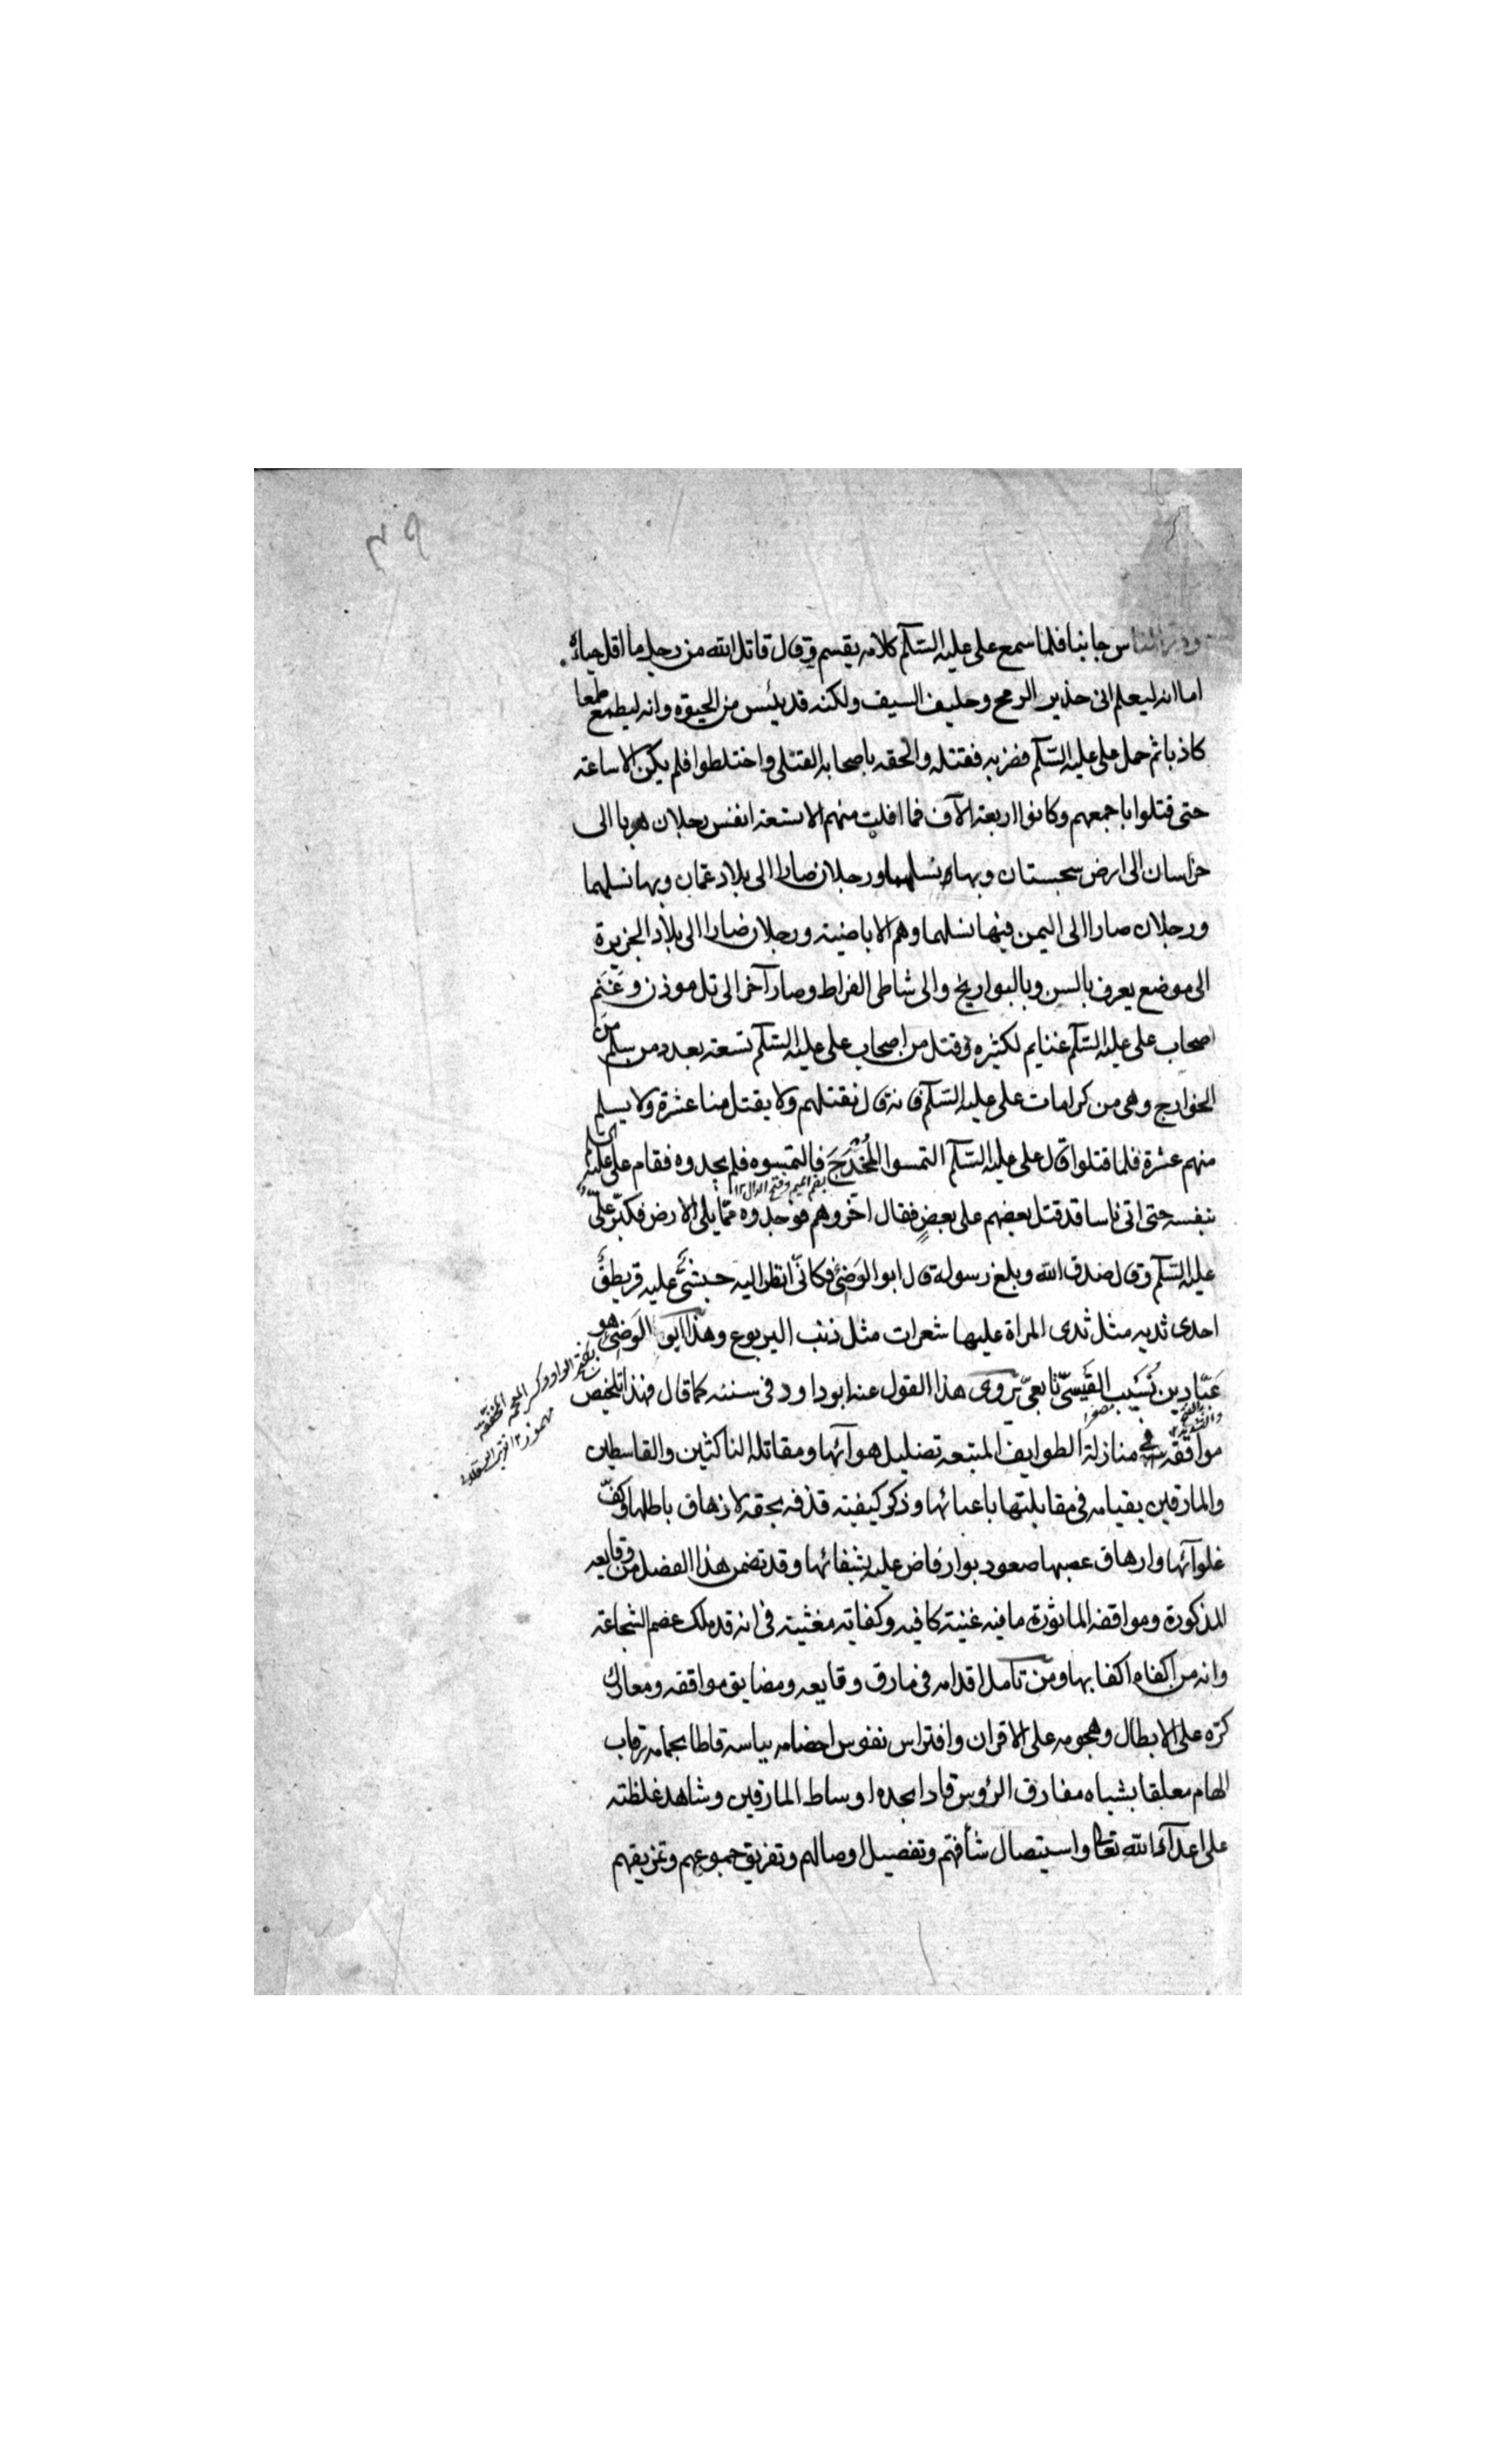 وذر الناس جانبا فلما سمع على عليه السّلم كلامه يقسم وقال قاتل الله من رجل ما اقل حياءُه
اما انه ليعلم انى حذير الرمح وحليف السيف ولكنه قد يئس من الحيوة وانه ليطمع طمعا
كاذبا ثم حمل على عليه السّلم فضربه فقتله والحقه باصحابه القتلى واختلطوا فلم يكن الا ساعة
حتى قتلوا باجمعهم وكانوا اربعة الآف فما افلت منهم الا تسعة انفس رجلان هربا الى
خراسان الى ارض سجستان وبها نسلهما ورجلان صارا الى بلاد عمان وبها نسلهما
ورجلان صارا الى اليمن فيها نسلهما وهم الاباضية ورجلان صارا الى بلاد الجزيرة
الى موضع يعرف بالسن وبالبواريخ والى شاطى الفراط وصار آخر الى تل موذن وغَنَم
اصحاب على عليه السّلم غنايم لكثيره وقتل من اصحاب على عليه السّلم تسعة بعدد من سلم من
الخوارج وهى من كرامات على عليه السّلم فانه قال نقتلهم ولا يقتل منا عشرة ولا يسلم
منهم عشرة فلما قتلوا قال على عليه السّلم التمسوا المُخْدَجَ فالتمسوه فلم يجدوه فقام على عليه السلم
بضم الميم وفتح الدال ١٢
بنفسه حتى اتى ناسا قد قتل بعضهم على بعضٍ فقال اخّروهم فوجدوه ممّا يلى الارض فكبّر علىّ
عليه السّلم وقال صدق الله وبلغ رسوله قال ابو الوَضئ فكانّى انظر اليه حبشىّ عليه قريطق
احدى ثدييه مثل ثدى المراة عليها شعرات مثل ذنب اليربوع وهذا ابو الوَضئ هو
بفتح الواو وكسر المعجمة المخففة
مهموز ١٢
عَبّاد بن نُسَيب القَيسىّ تابعىّ يروى هذا القول عنه ابو داود فى سننه كما قال فهذا تلخيص
بالفتح والتشديد ١٢
مصغرا
مواقفه فى منازلة الطوايف المتبعة تضليل هوآئها ومقاتلة الناكثين والقاسطين
والمارقين بقيامه فى مقابلتها باعبائها وذكر كيفية قذفه بحقه لازهاق باطلها وكفّ
غلوآئها وارهاق عصبها صعود بوار فاض عليه بشفائها وقد تضمن هذا الفصل من وقايعه
المذكورة ومواقفه الماثورة ما فيه غنية كافيه وكفاية مغنية فى انه قد ملك عصم الشجاعة
وانه من اكفاء اكفابها ومن تأمل اقدامه فى مازق وقايعه ومضايق مواقفه ومعارك
كرّه على الابطال وهجومه على الاقران وافتراس نفوس اخصامه بباسه قاطا بحسامه رقاب
الهام معلقا بشباه مفارق الرؤس قادا بحده اوساط المارقين وشاهد غلظته
على اعدآء الله تعالى واستيصال شأفتهم وتفصيل اوصالهم وتفريق جموعهم وتمزيقهم